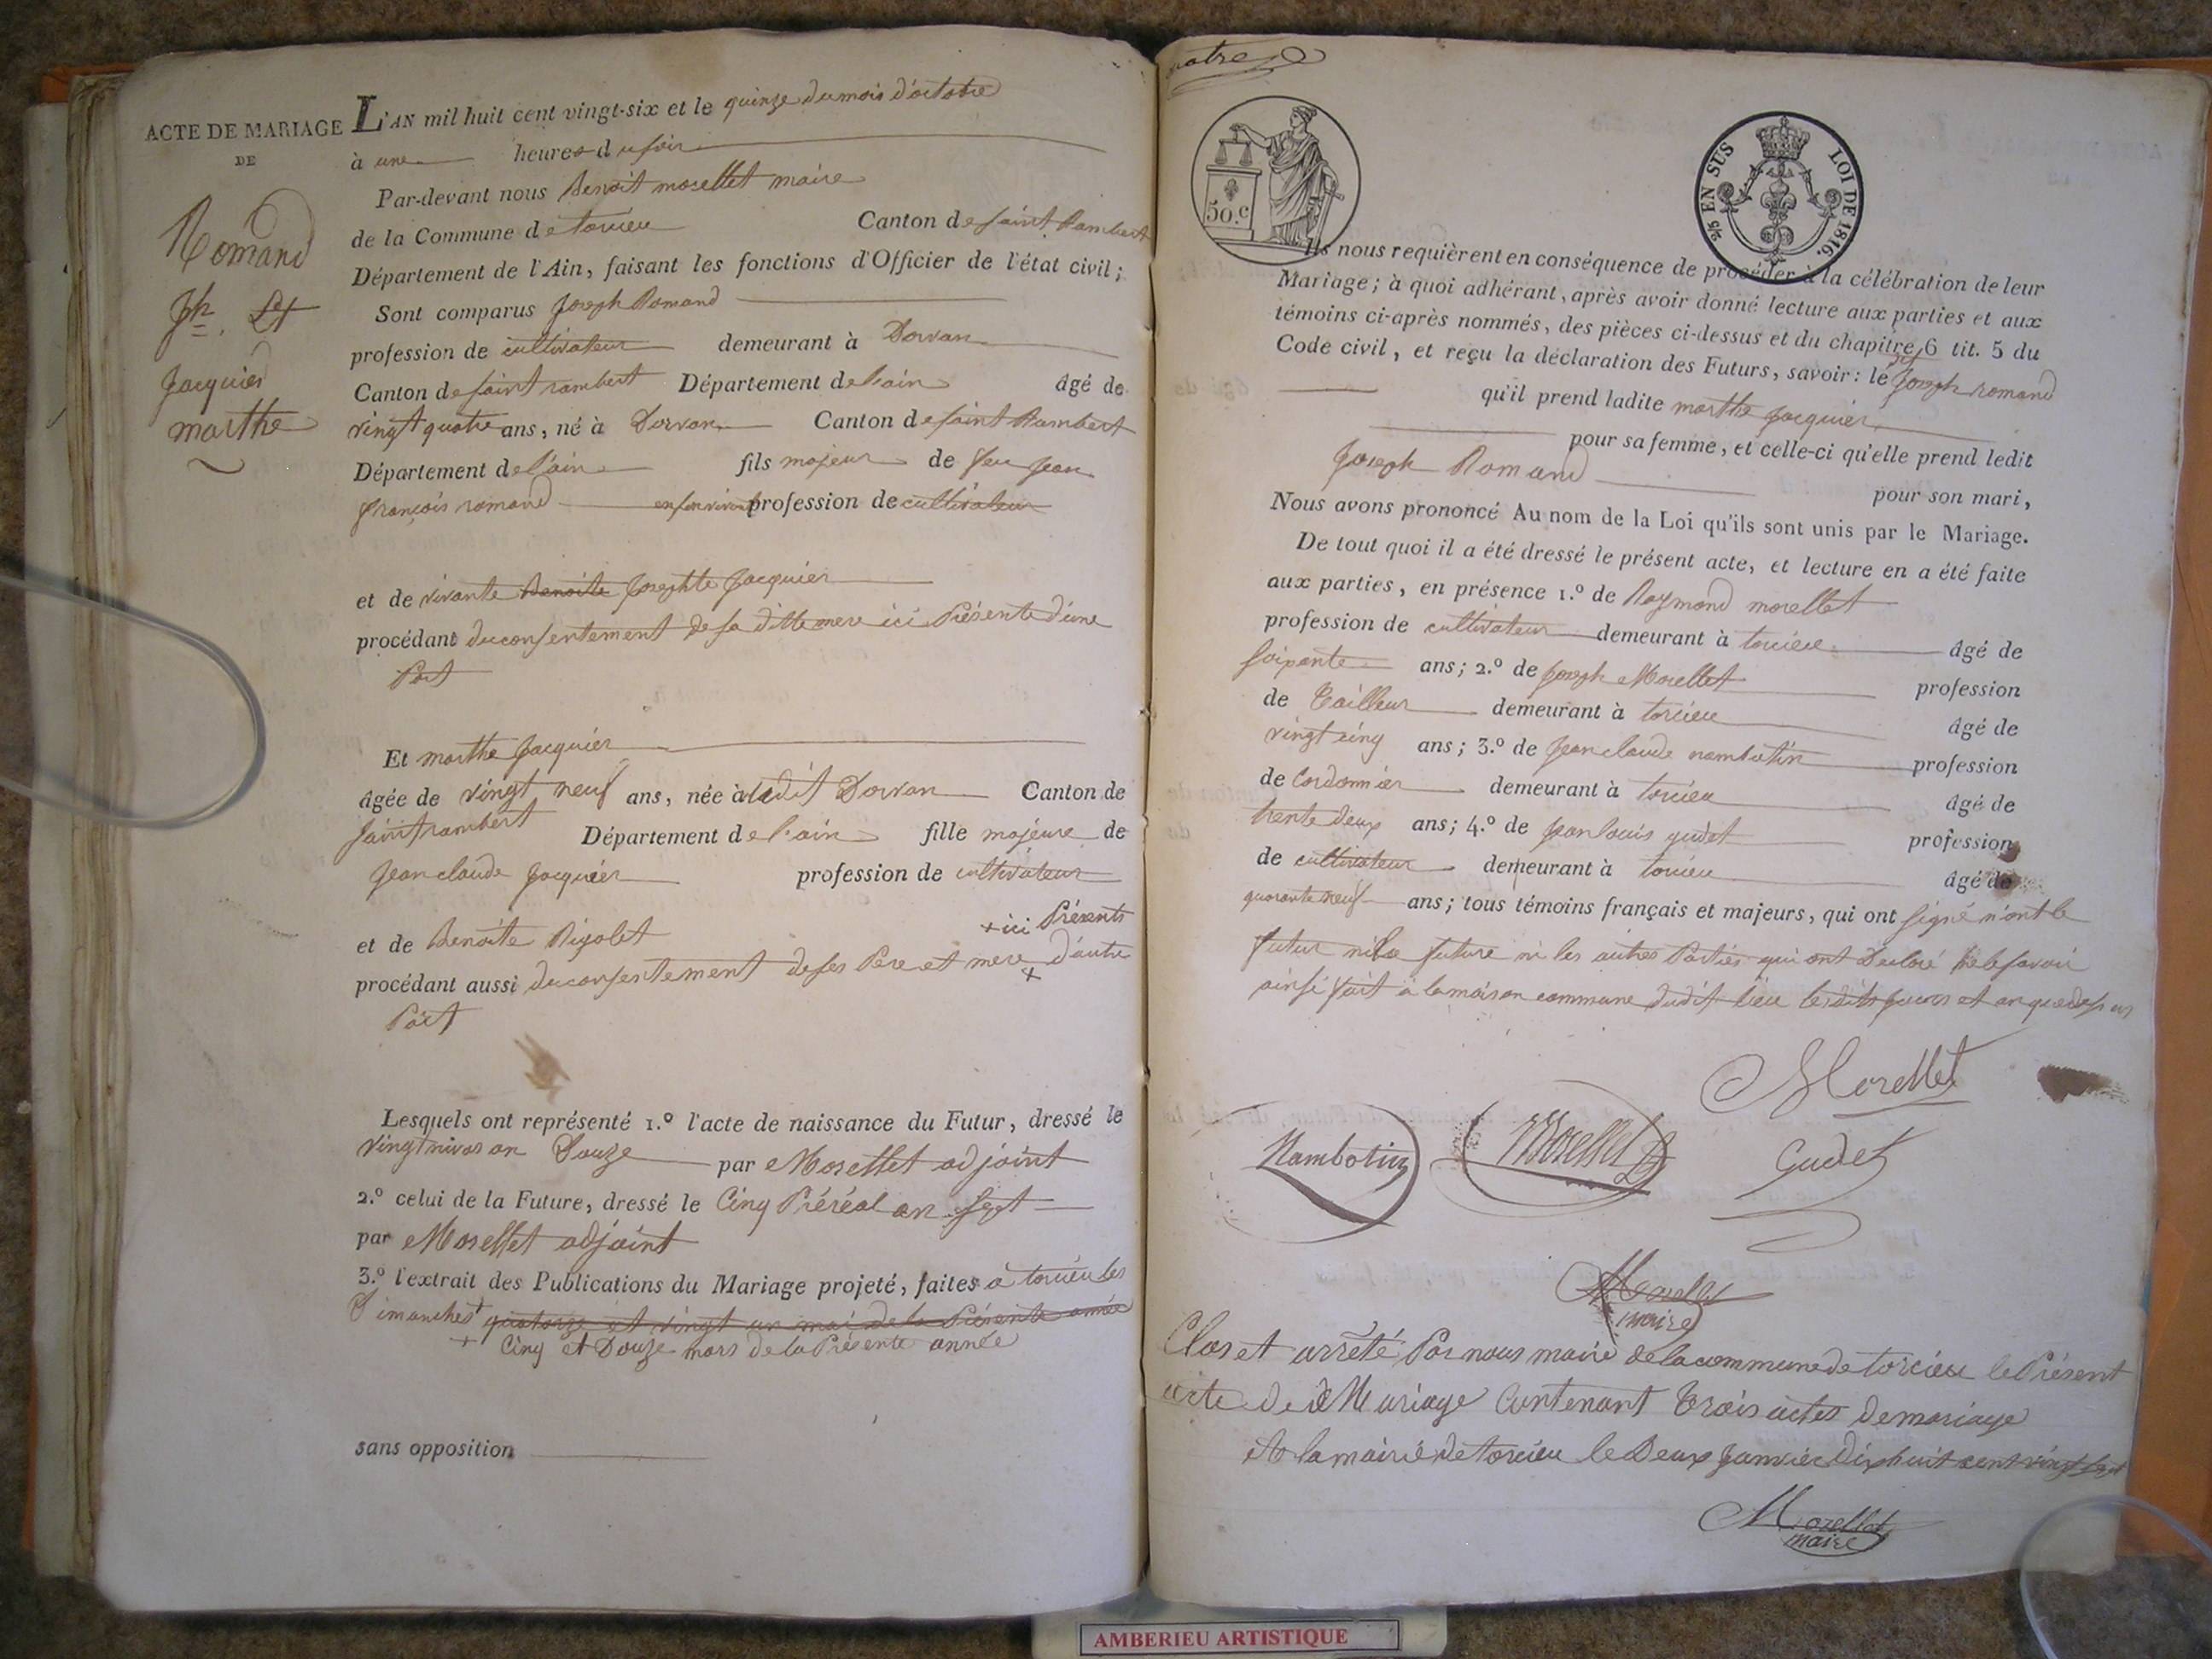 ACTE DE MARIAGE
DE
Romand
Jh. Et
Jacquier
marthe
L'AN mil huit cent vingt-six et le quinze du mois d'octobre
à une heures du soir
Par-devant nous Benoit morellet maire
de la Commune de torcieu Canton de saint Rambert
Département de l'Ain, faisant les fonctions d'Officier de l'état civil;
Sont comparus Joseph Romand
profession de cultivateur demeurant à Dorvan
Canton de saint rambert Département de l'ain âgé de
vingt quatre ans, né à Dorvan Canton de saint Rambert
Département de l'ain fils majeur de feu jean
françois romand en son vivant profession de cultivateur
et de vivante Benoite Josephte Jacquier
procédant du consentement de sa ditte mere ici Présente d'une
Part
Et marthe Jacquier
âgée de vingt neuf ans, née à ledit Dorvan Canton de
saint rambert Département de l'ain fille majeure de
Jean claude Jacquier profession de cultivateur
et de Benoite Rigolet + ici Présents
procédant aussi du consentement de ses Pere et mere + d'autre
Part
Lesquels ont représenté 1.º l'acte de naissance du Futur, dressé le
vingt nivos an Douze par Morellet adjoint
2.º celui de la Future, dressé le Cinq Préréal an sept
par Morellet adjoint
3.º l'extrait des Publications du Mariage projeté, faites à torcieu les
Dimanches + quatorze et vingt un mai de la Présente année
+ Cinq et Douze mars de la Présente année
sans opposition
50.c
2/5 EN SUS LOI DE 1816.
Ils nous requièrent en conséquence de procéder à la célébration de leur
Mariage; à quoi adhérant, après avoir donné lecture aux parties et aux
témoins ci-après nommés, des pièces ci-dessus et du chapitre 6 tit. 5 du
Code civil, et reçu la déclaration des Futurs, savoir: le dit Joseph romand
qu'il prend ladite marthe Jacquier
pour sa femme, et celle-ci qu'elle prend ledit
Joseph Romand pour son mari,
Nous avons prononcé Au nom de la Loi qu'ils sont unis par le Mariage.
De tout quoi il a été dressé le présent acte, et lecture en a été faite
aux parties, en présence 1.º de Raymond morellet
profession de cultivateur demeurant à torcieu âgé de
soixante ans; 2.º de Joseph Morellet profession
de Tailleur demeurant à torcieu âgé de
vingt cinq ans; 3.º de Jean claude nambotin profession
de Cordonnier demeurant à torcieu âgé de
trente deux ans; 4.º de jean louis gudet profession
de cultivateur demeurant à torcieu âgé de
quarante neuf ans; tous témoins français et majeurs, qui ont signé n'ont le
futur ni la future ni les autres Parties qui ont Declaré ne le savoir
ainsi fait à la maison commune dudit lieu les dits jours et an que dessus
Morellet
Nambotin Morellet Gudet
Morellet
maire
Clos et arrêté Par nous maire de la commune de torcieu le Présent
acte de Mariage Contenant Trois actes de mariage
A la mairie de torcieu le Deux janvier Dix huit cent vingt sept
Morellet
maire
AMBERIEU ARTISTIQUE